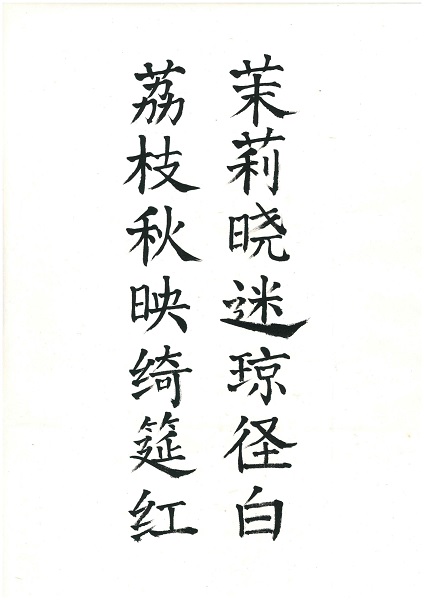 茉莉晓迷琼径白
荔枝秋映绮筵红